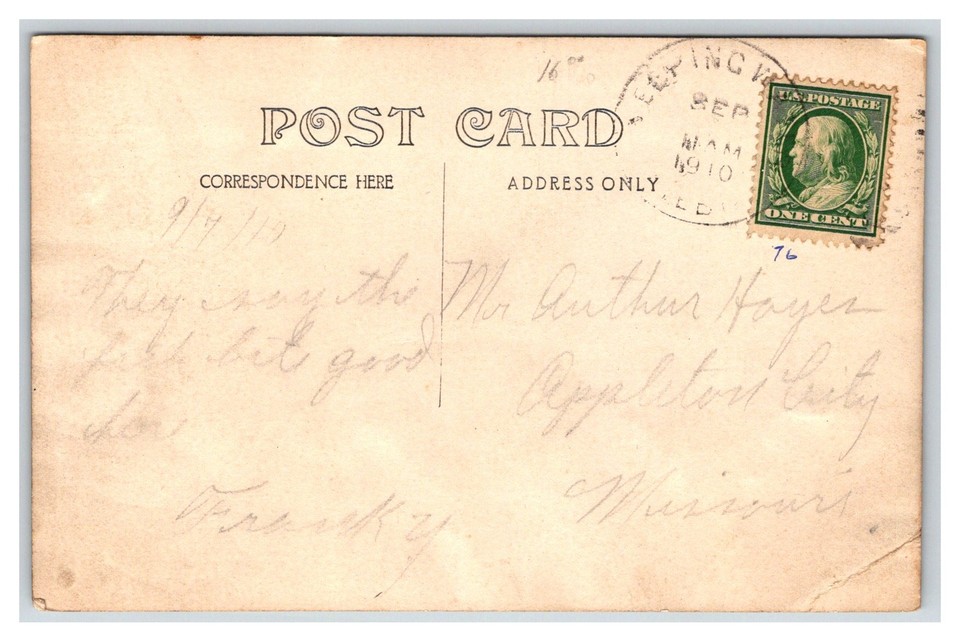 16
POST CARD
CORRESPONDENCE HERE
ADDRESS ONLY
EEPING W
SEP
AM
1910
EB
U.S. POSTAGE
ONE CENT
76
9/7/10
They say the
fish bite good
here
Franky
Mr Arthur Hayes
Appleton City
Missouri